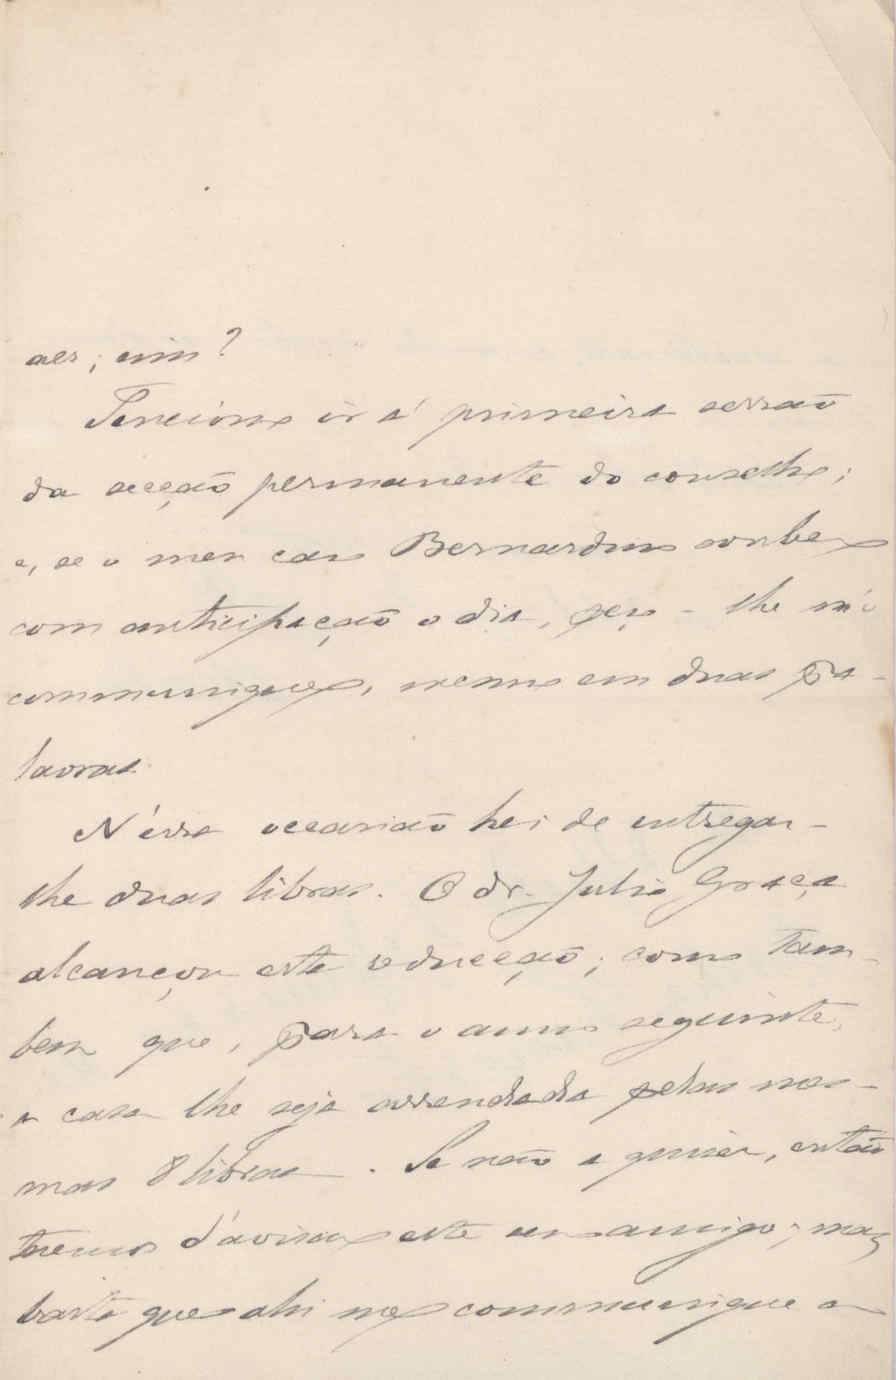 ser; sim?
Tenciono ir á primeira sessão
da secção permanente do conselho;
e, se o meu caro Bernardino souber
com anticipação o dia, peço-lhe m'o
communique, mesmo em duas pa-
lavras.
N'essa occasião hei de entregar-
lhe duas libras. O dr. Julio Graça
alcançou esta reducção; como tam-
bem que, para o anno seguinte,
a casa lhe seja arrendada pelas mes-
mas 8 libras. Se não a quizer, então
temos d'avisar este seu amigo; mas
basta que ahi me communique a